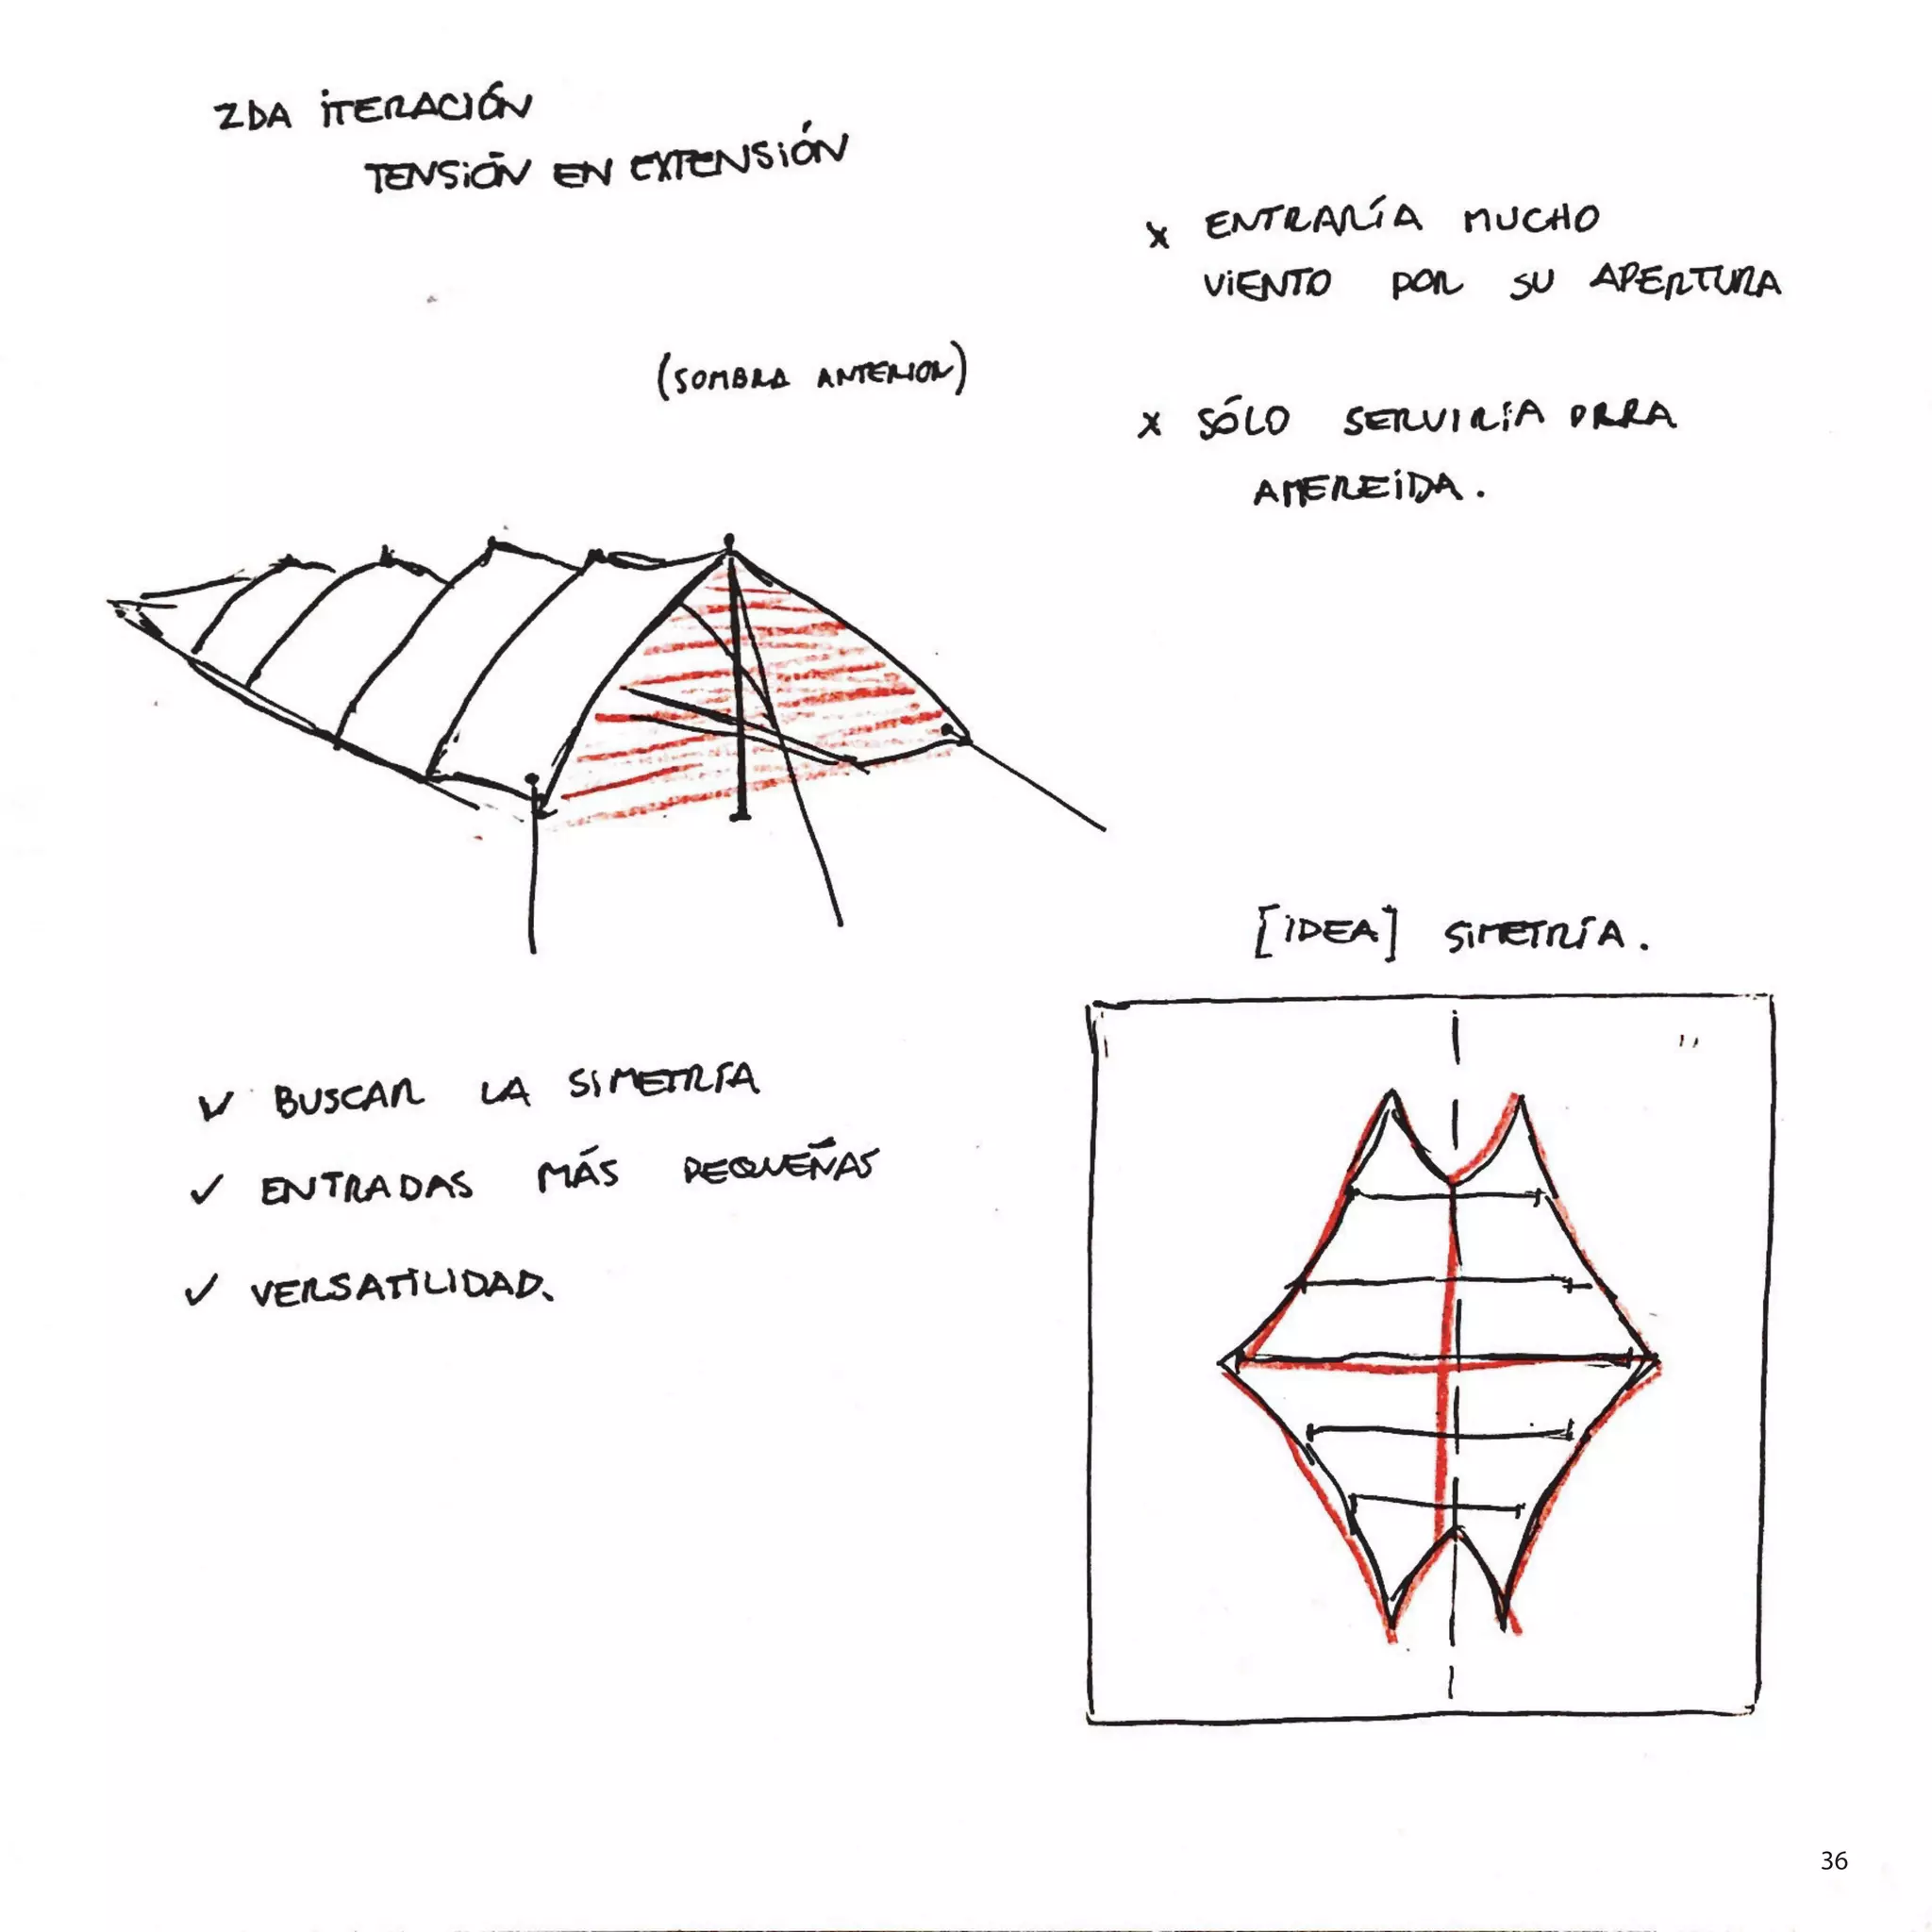 2DA ITERACIÓN
TENSIÓN EN EXTENSIÓN
x ENTRARÍA MUCHO
VIENTO POR SU APERTURA
(SOMBRA ANTERIOR)
x SÓLO SERVIRÍA PARA
AMEREIDA.
[IDEA] SIMETRÍA.
✓ BUSCAR LA SIMETRÍA
✓ ENTRADAS MÁS PEQUEÑAS
✓ VERSATILIDAD.
36